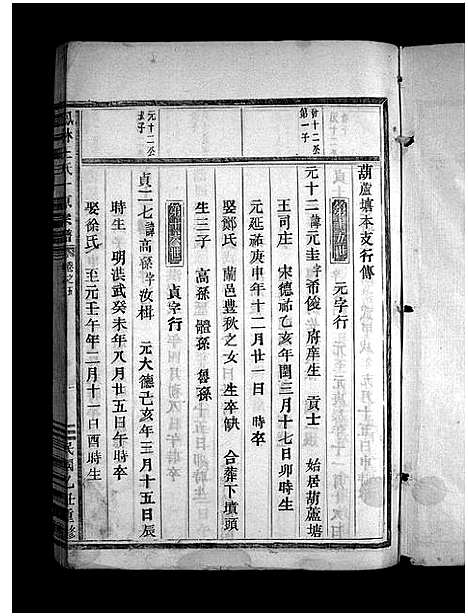 葫蘆塘本支行傳
元字行
曾十二公
第一子
元十三 諱元圭字希俊 府庠生 貢士 始居葫蘆塘
王司庄 宋德祐乙亥年閏三月十七日卯時生
元延祐庚申年十二月廿一日 時卒
娶鄭氏 蘭邑豐秋之女 生卒缺 合葬下墳頭
生三子 高孫 體孫 魯孫
貞字行
元十三公
長子
貞二七 諱高孫字汝楫 元大德己亥年三月十五日辰
時生 明洪武癸未年八月廿五日午時卒
娶徐氏 至元壬午年二月十一日酉時生
民國乙丑重修